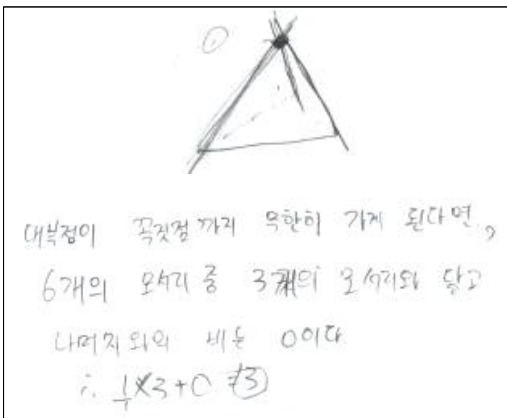 ①
내부점이 꼭짓점까지 무한히 가게 된다면,
6개의 모서리 중 3개의 모서리와 닿고
나머지와의 비는 0이다
∴ 1/1×3+0=3